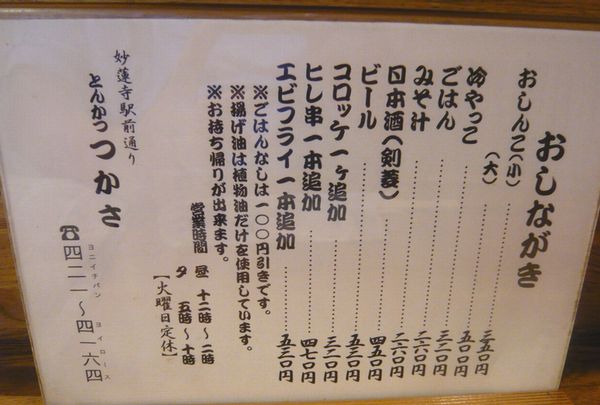 おしながき
おしんこ(小)……三五〇円
(大)……五〇〇円
冷やっこ……五〇〇円
ごはん……二六〇円
みそ汁……二六〇円
日本酒(剣菱)……四五〇円
ビール……五三〇円
コロッケ一ヶ追加……三二〇円
ヒレ串一本追加……四七〇円
エビフライ一本追加……五三〇円
※ごはんなしは一〇〇円引きです。
※揚げ油は植物油だけを使用しています。
※お持ち帰りが出来ます。
営業時間 昼 十二時〜二時
夕 五時〜十時
【火曜日定休】
妙蓮寺駅前通り
とんかつ つかさ
☎四二一〜四一六四
ヨニイチバン ヨイロース